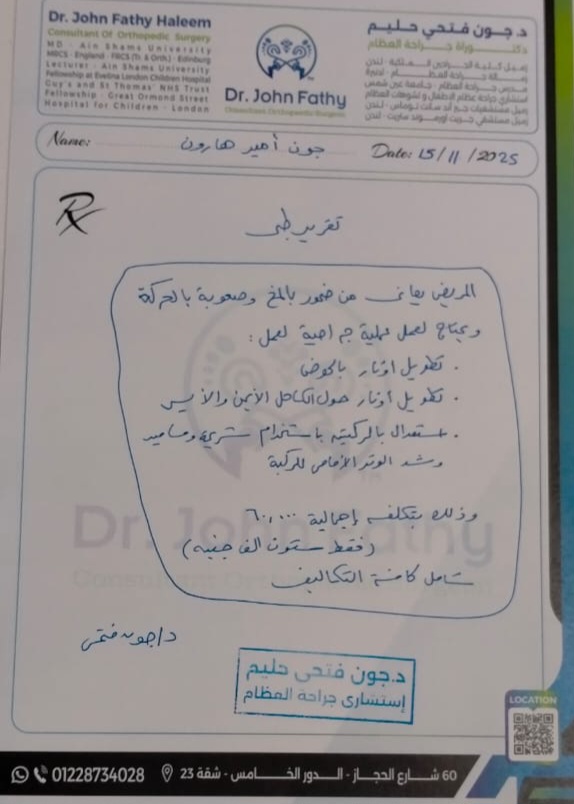 Dr. John Fathy Haleem
Consultant Of Orthopedic Surgery
MD - Ain Shams University
MRCS - England - FRCS (Tr. & Orth.) - Edinburg
Lecturer - Ain Shams University
Fellowship at Evelina London Children Hospital
Guy's and St Thomas' NHS Trust
Fellowship - Great Ormond Street
Hospital for Children - London
Dr. John Fathy
Consultant Orthopaedic Surgeon
د. جون فتحي حليم
دكتوراة جراحة العظام
زميل كلية الجراحين الملكية - لندن
مدرس جراحة العظام - جامعة عين شمس
استشاري جراحة عظام الاطفال و تشوهات العظام
زميل مستشفيات جاي اند سانت توماس - لندن
زميل مستشفي جريت اورموند ستريت - لندن
Name: جون أمير هارون Date: 15/11/2025
Rx
تقرير طبى
المريض يعانى من ضمور بالمخ وصعوبة بالحركة
ويحتاج لعمل عملية جراحية لعمل :
. تطويل أوتار بالحوض
. تطويل أوتار حول الكاحل الأيمن والأيسر
. استعدال بالركبتين باستخدام شريحة ومسامير
وشد الوتر الأمامى للركبة
وذلك بتكلفه إجمالية ٦٠,٠٠٠
(فقط ستون الف جنيه)
شامل كافة التكاليف
د/جون فتحى
د.جون فتحى حليم
إستشارى جراحة العظام
Dr. John Fathy
LOCATION
01228734028 60 شارع الحجاز - الدور الخامس - شقة 23